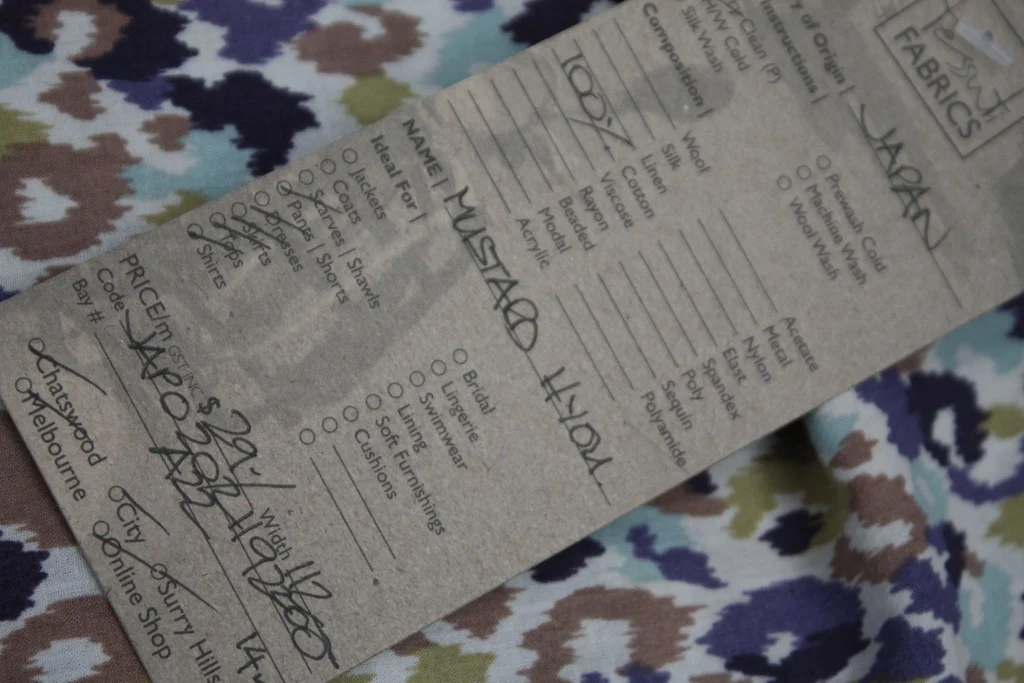 Tessuti
FABRICS
y of Origin | JAPAN
Instructions |
Clean (P)
H/W Cold
Silk Wash
Prewash Cold
Machine Wash
Wool Wash
Composition |
Wool
Silk
Linen
100% Cotton
Viscose
Rayon
Beaded
Modal
Acrylic
Acetate
Metal
Nylon
Elast
Spandex
Poly
Sequin
Polyamide
NAME | MUSTARD HYDR
Ideal For |
Jackets
Coats
Scarves | Shawls
Pants | Shorts
Dresses
Skirts
Tops
Shirts
Bridal
Lingerie
Swimwear
Lining
Soft Furnishings
Cushions
PRICE/m GST INC $ 29.- Width 112
Code
Bay #
Chatswood
Melbourne
City
Online Shop
Surry Hills